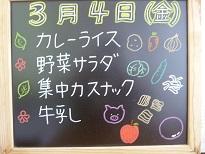 3月4日(金)
カレーライス
野菜サラダ
集中カスナック
牛乳